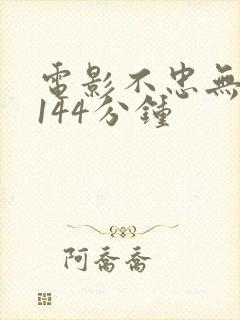 電影不忠無
144分鍾
阿喬喬